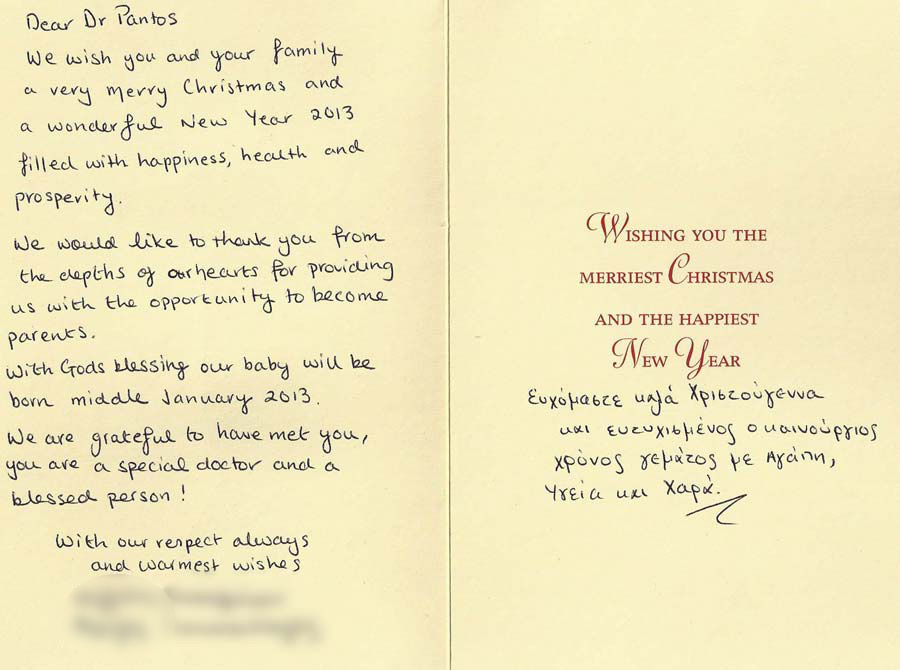 Dear Dr Pantos
We wish you and your family
a very merry Christmas and
a wonderful New Year 2013
filled with happiness, health and
prosperity.
We would like to thank you from
the depths of our hearts for providing
us with the opportunity to become
parents.
With Gods blessing our baby will be
born middle January 2013.
We are grateful to have met you,
you are a special doctor and a
blessed person!
With our respect always
and warmest wishes
WISHING YOU THE
MERRIEST CHRISTMAS
AND THE HAPPIEST
NEW YEAR
Ευχόμαστε καλά Χριστούγεννα
και ευτυχισμένος ο καινούργιος
χρόνος γεμάτος με Αγάπη,
Υγεία και Χαρά.